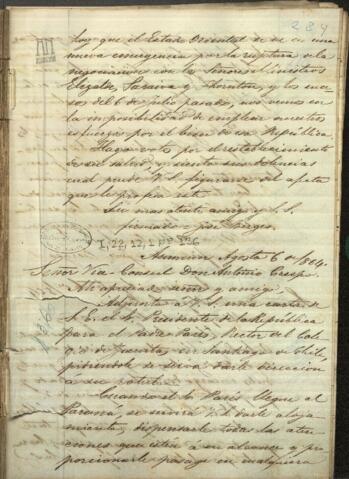 284
hoy que el Estado Oriental de
nueva emergencia por la ruptura de la
negociaciones con los Señores Ministros
Elizalde, Saraiva y Thornton, y los
sos del 6 de julio pasado, nos vemos en
la imposibilidad de emplear nuestros
esfuerzos por el bien de esa República.
Hago votos por el restablecimiento
de su salud, y siento sus dolencias
cual puede V. S. figurarse del afecto
que le profesa este
Su mas atento amigo y S. S.
firmado
I, 22, 12, 1 nº 136
Asuncion Agosto 6 de 1864.
Señor Vice Consul Don Antonio Crespo.
Mi apreciado señor y amigo:
Adjunta a V. S. una carta de
S. E. el Sr. Presidente de la República
para el Padre Parés, Rector del Cole
gio de Jesuitas, en Santiago de Chile,
pidiendole se sirva darle direccion
a su rotulo.
Cuando el Sr. Parés llegue al
Paraná, se servirá V. S. darle aloja
miento, dispensarle todas las aten
ciones que esten a su alcance y pro
porcionarle pasaje en cualquiera